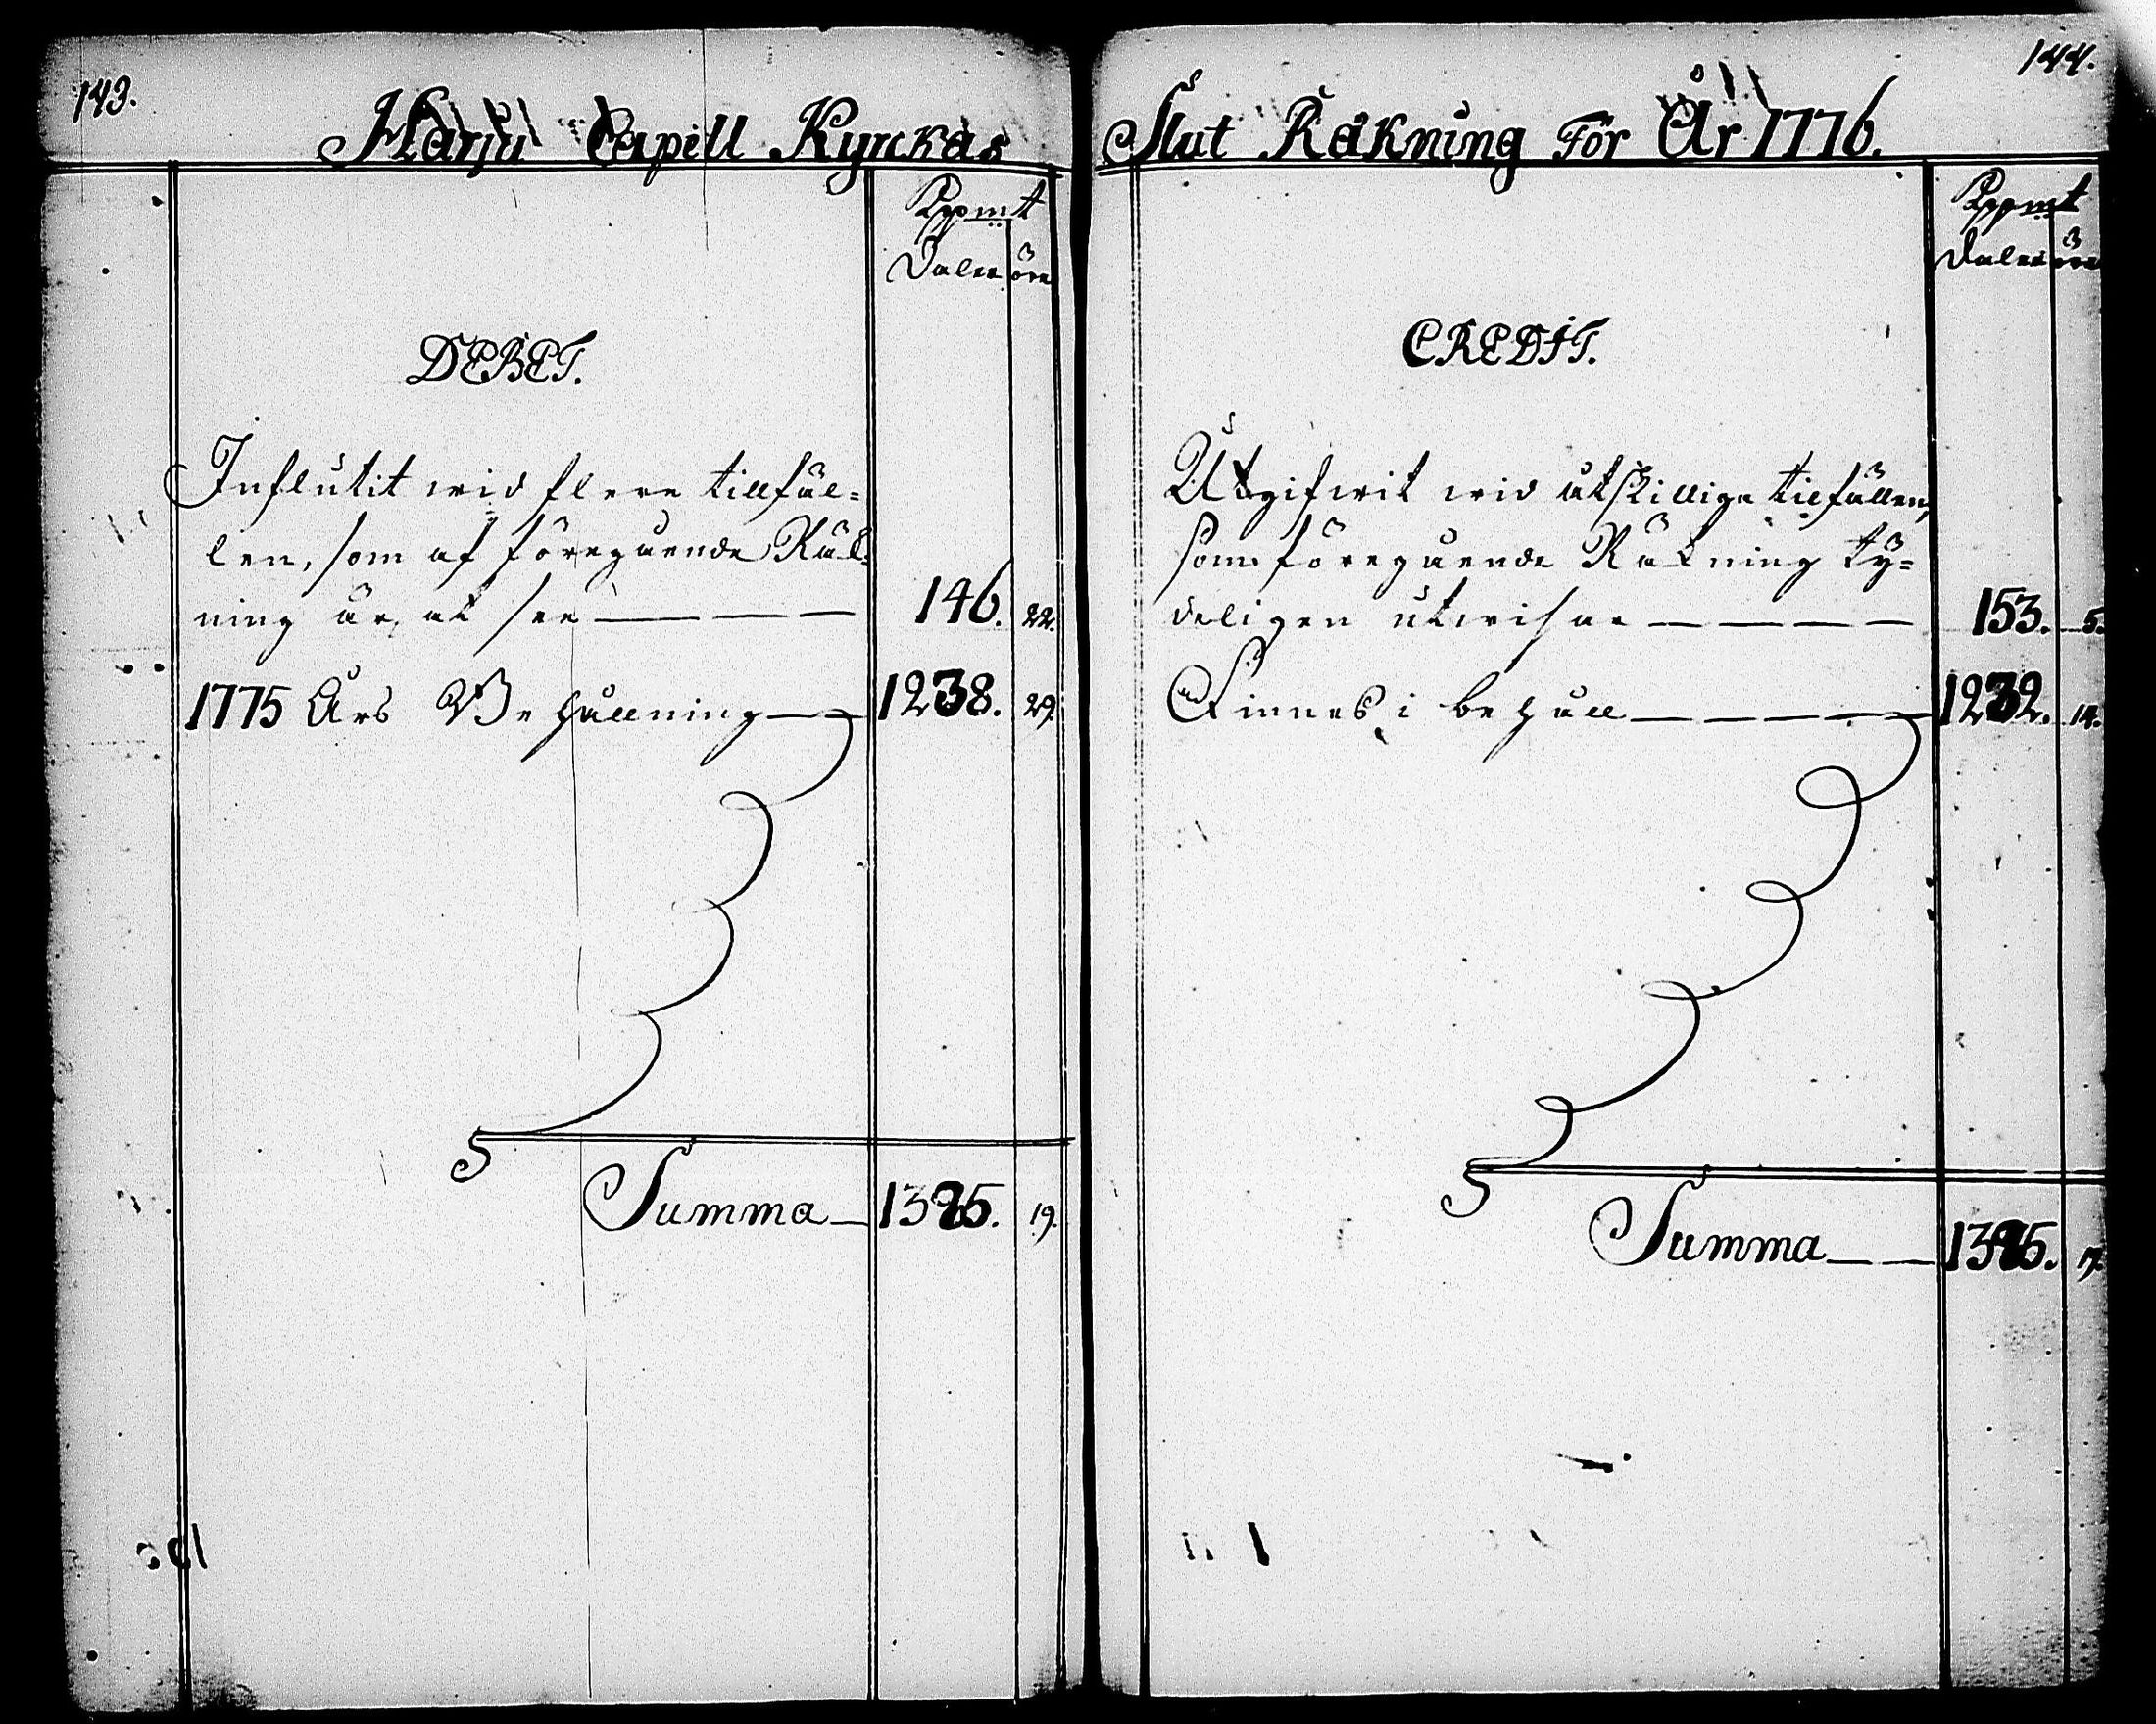 143.
Harju Capell Kyrckas
Kppmt
Daler öre
DEBET.
Influtit wid flere tillfäl=
len, som af föregående Räk=
ning är at see 146. 22.
1775 Års Behållning 1238. 29.
Summa 1385. 19.
144.
Slut Räkning För År 1776.
Kppmt
Daler öre
CREDIT.
Utgifwit wid åtskillige tilfällen,
som föregående Räkning ty=
deligen utwisar 153. 5.
Finnes i behåll 1232. 14.
Summa 1385. 19.